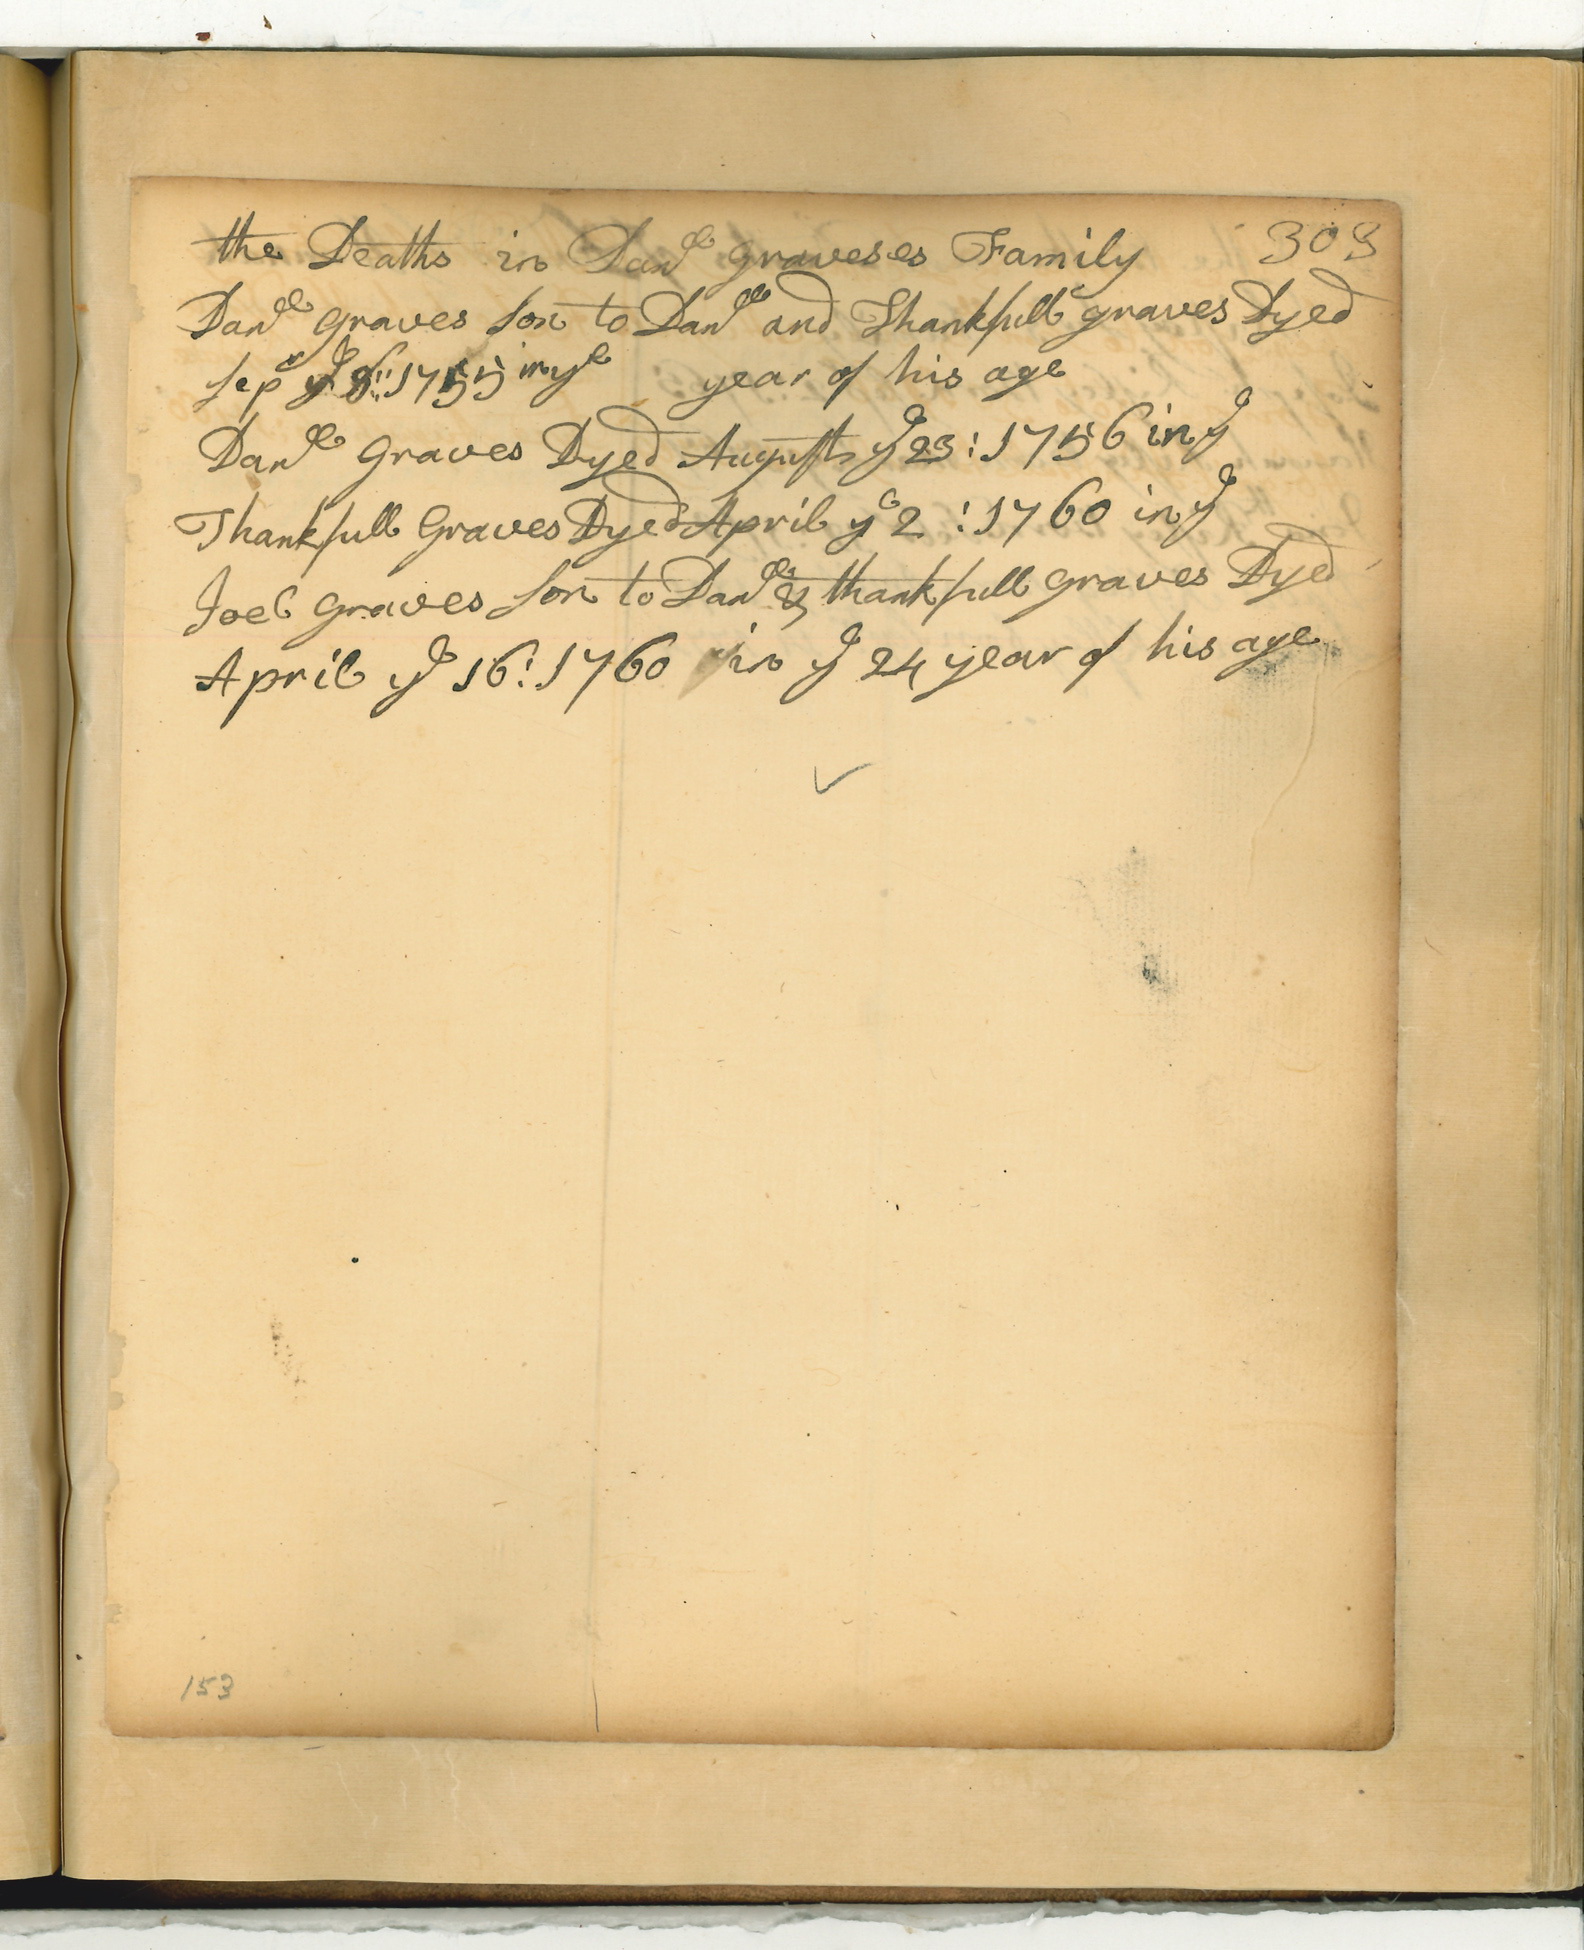 the Deaths in Danll Graveses Family 303
Danll Graves Son to Danll and Thankfull graves Dyed
Sepr ye 8: 1755 in ye year of his age
Danll Graves Dyed August ye 23: 1756 in ye
Thankfull Graves Dyed April ye 2: 1760 in ye
Joel Graves Son to Danll & thankfull Graves Dyed
April ye 16: 1760 in ye 24 year of his age
153